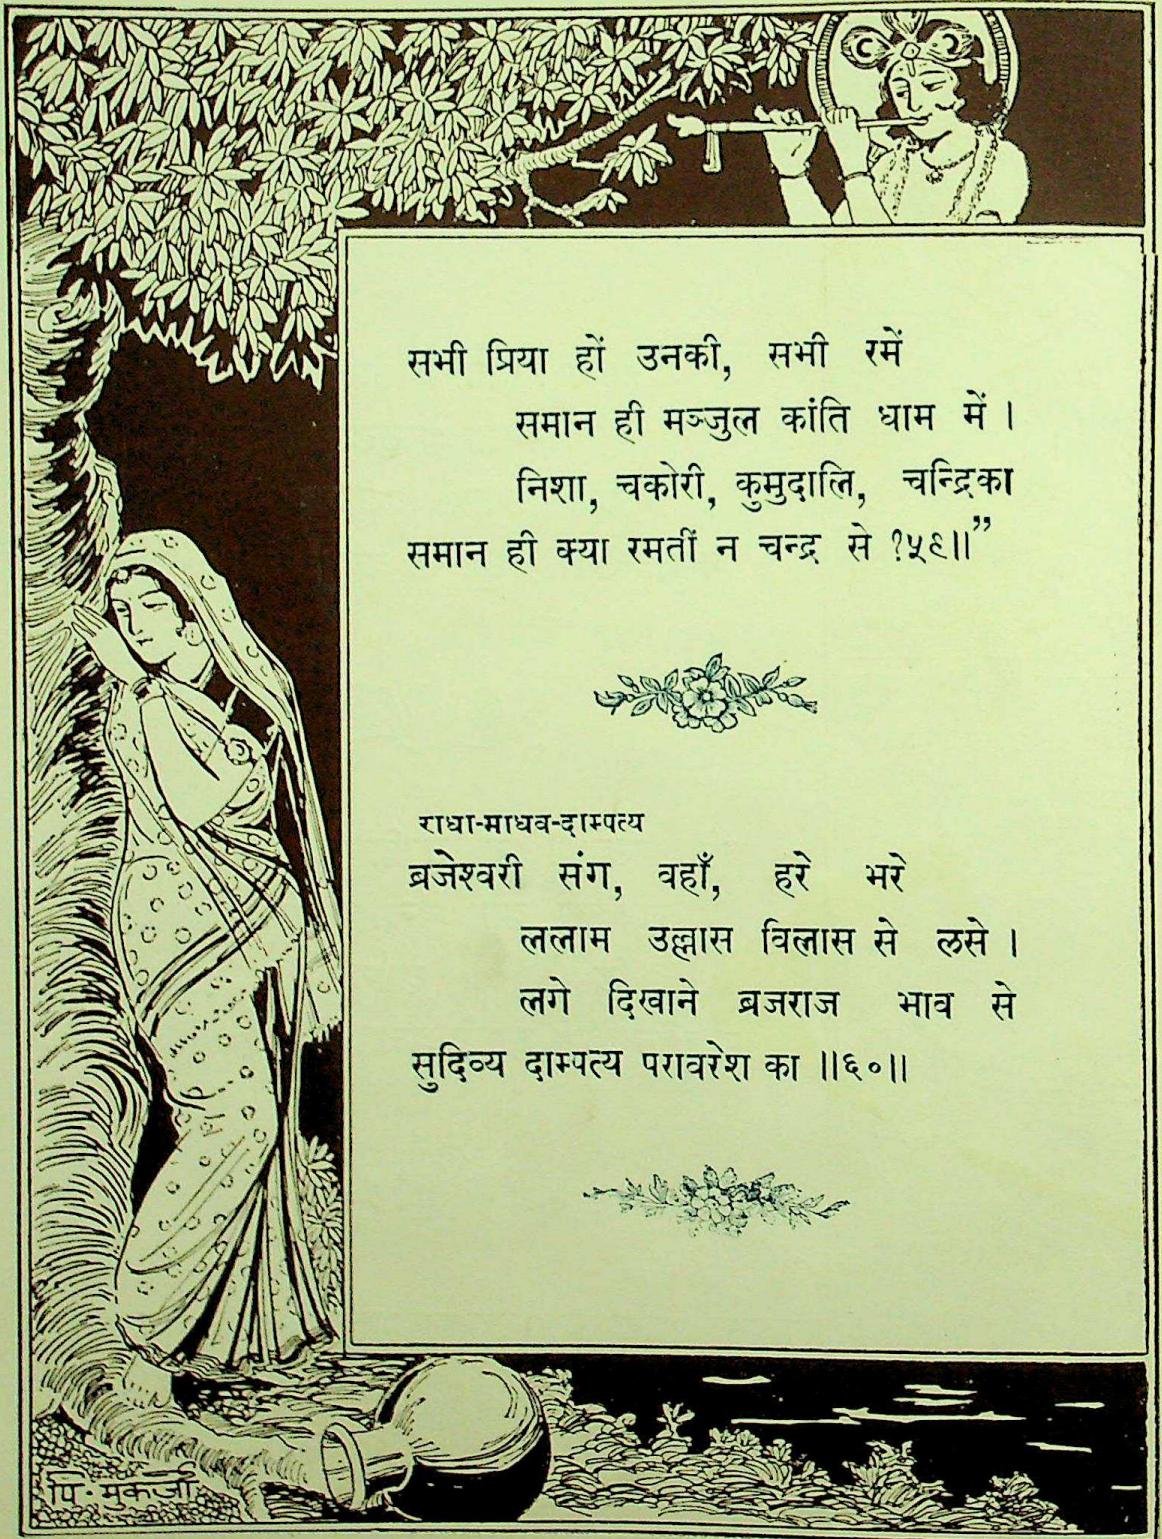 सभी प्रिया हों उनकी, सभी रमें
समान ही मञ्जुल कांति धाम में।
निशा, चकोरी, कुमुदालि, चन्द्रिका
समान ही क्या रमतीं न चन्द्र से ?५९॥”
राधा-माधव-दाम्पत्य
ब्रजेश्वरी संग, वहाँ, हरे भरे
ललाम उल्लास विलास से लसे।
लगे दिखाने ब्रजराज भाव से
सुदिव्य दाम्पत्य परावरेश का ॥६०॥
पि. मुकर्जी